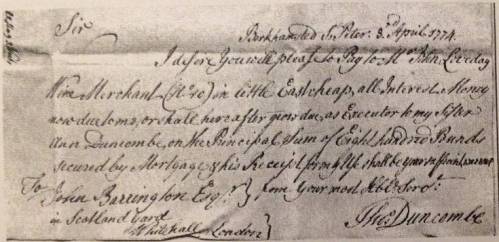 Sir
Berkhamsted St Peter. 3d April 1774.
I desire You will please to Pay to Mr John Loveday
Wine Merchant (No 10) in little Eastcheap, all Interest Money
now due to me, or shall hereafter grow due, as Executor to my Sister
Ann Duncombe, on the Principal Sum of Eight hundred Pounds
secured by Mortgage & his Receipt for the same shall be your sufficient
To John Barrington Esqr. } from Your most Obedt. Servt.
in Scotland Yard
Whitehall London }
Thos Duncombe